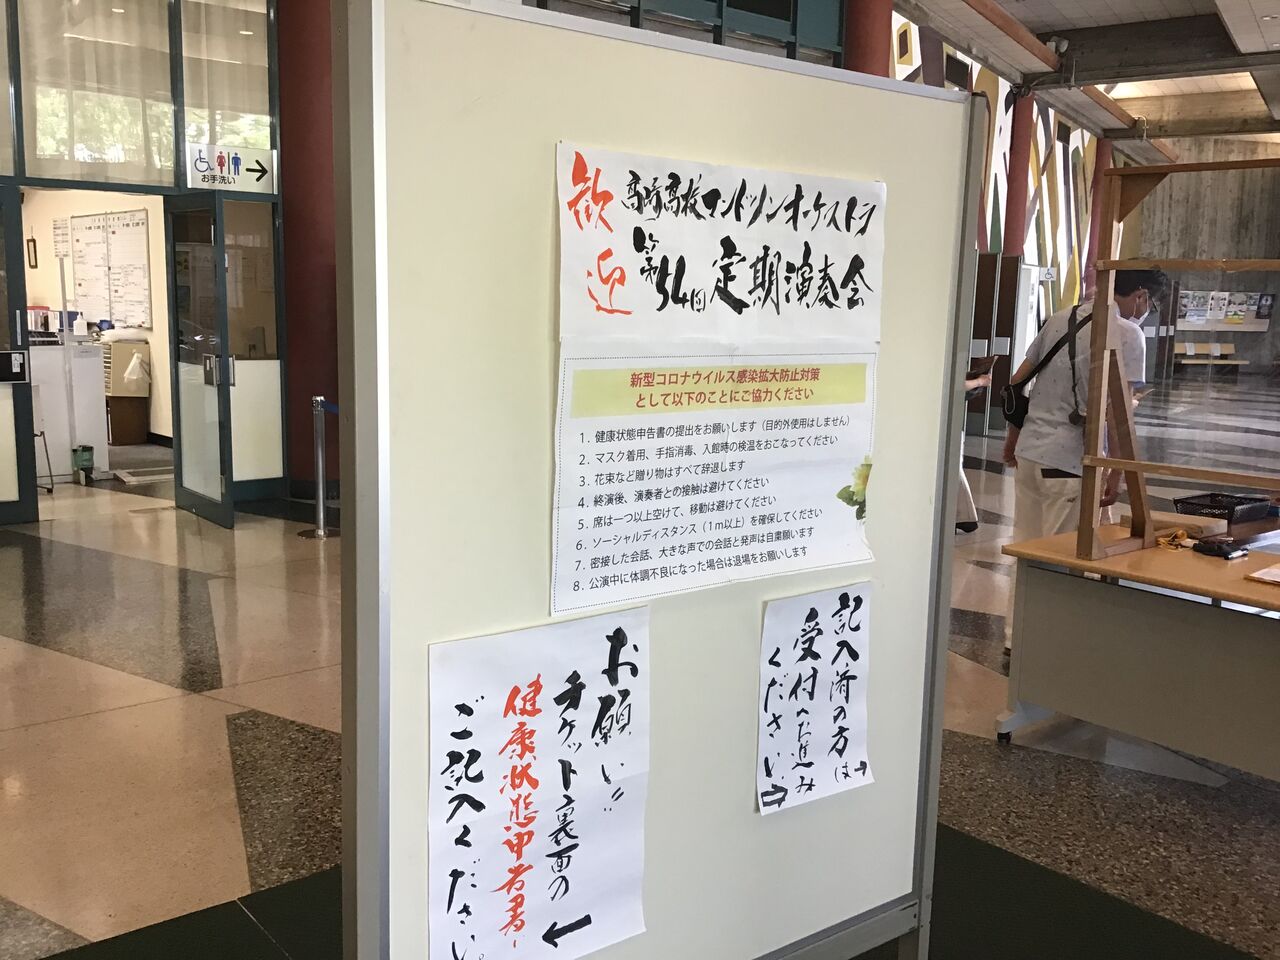 お手洗い
歓迎
高崎高校マンドリンオーケストラ
第54回定期演奏会
新型コロナウイルス感染拡大防止対策
として以下のことにご協力ください
1．健康状態申告書の提出をお願いします（目的外使用はしません）
2．マスク着用、手指消毒、入館時の検温をおこなってください
3．花束など贈り物はすべて辞退します
4．終演後、演奏者との接触は避けてください
5．席は一つ以上空けて、移動は避けてください
6．ソーシャルディスタンス（1m以上）を確保してください
7．密接した会話、大きな声での会話と発声は自粛願います
8．公演中に体調不良になった場合は退場をお願いします
お願い!!
チケット裏面の
健康状態申告書に
ご記入ください。
記入済の方は→
受付へお進み
ください。⇨